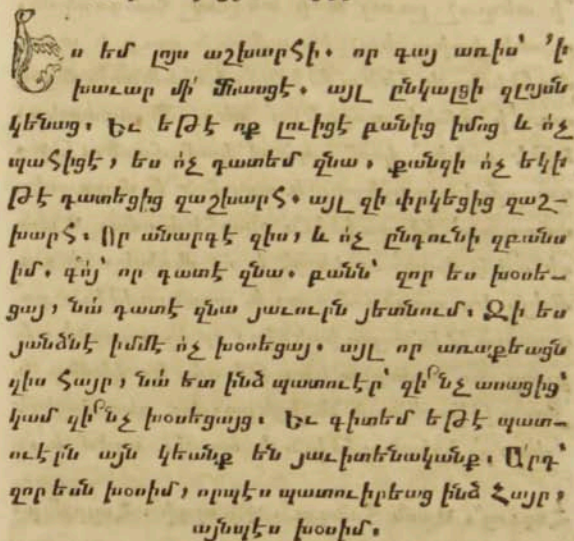 Ես եմ լոյս աշխարհի. որ գայ առիս՝ ՚ի
խաւար մի՛ մնասցէ. այլ ընկալցի զլոյսն
կենաց։ Եւ եթէ ոք լուիցէ բանից իմոց և ոչ
պահիցէ, ես ոչ դատեմ զնա, քանզի ոչ եկի
թէ դատեցից զաշխարհ. այլ զի փրկեցից զաշ-
խարհ։ Որ անարգէ զիս, և ոչ ընդունի զբանս
իմ. գո՛յ՝ որ դատէ զնա. բանն՝ զոր ես խօսե-
ցայ, նա՛ դատէ զնա յաւուրն յետնում։ Զի ես
յանձնէ իմմէ ոչ խօսեցայ. այլ որ առաքեացն
զիս Հայր, նա՛ ետ ինձ պատուէր՝ զի՞նչ ասացից՝
կամ զի՞նչ խօսեցայց։ Եւ գիտեմ եթէ պատ-
ուէրն այն կեանք են յաւիտենականք։ Արդ՝
զոր եսն խօսիմ, որպէս պատուիրեաց ինձ Հայր,
այնպէս խօսիմ։